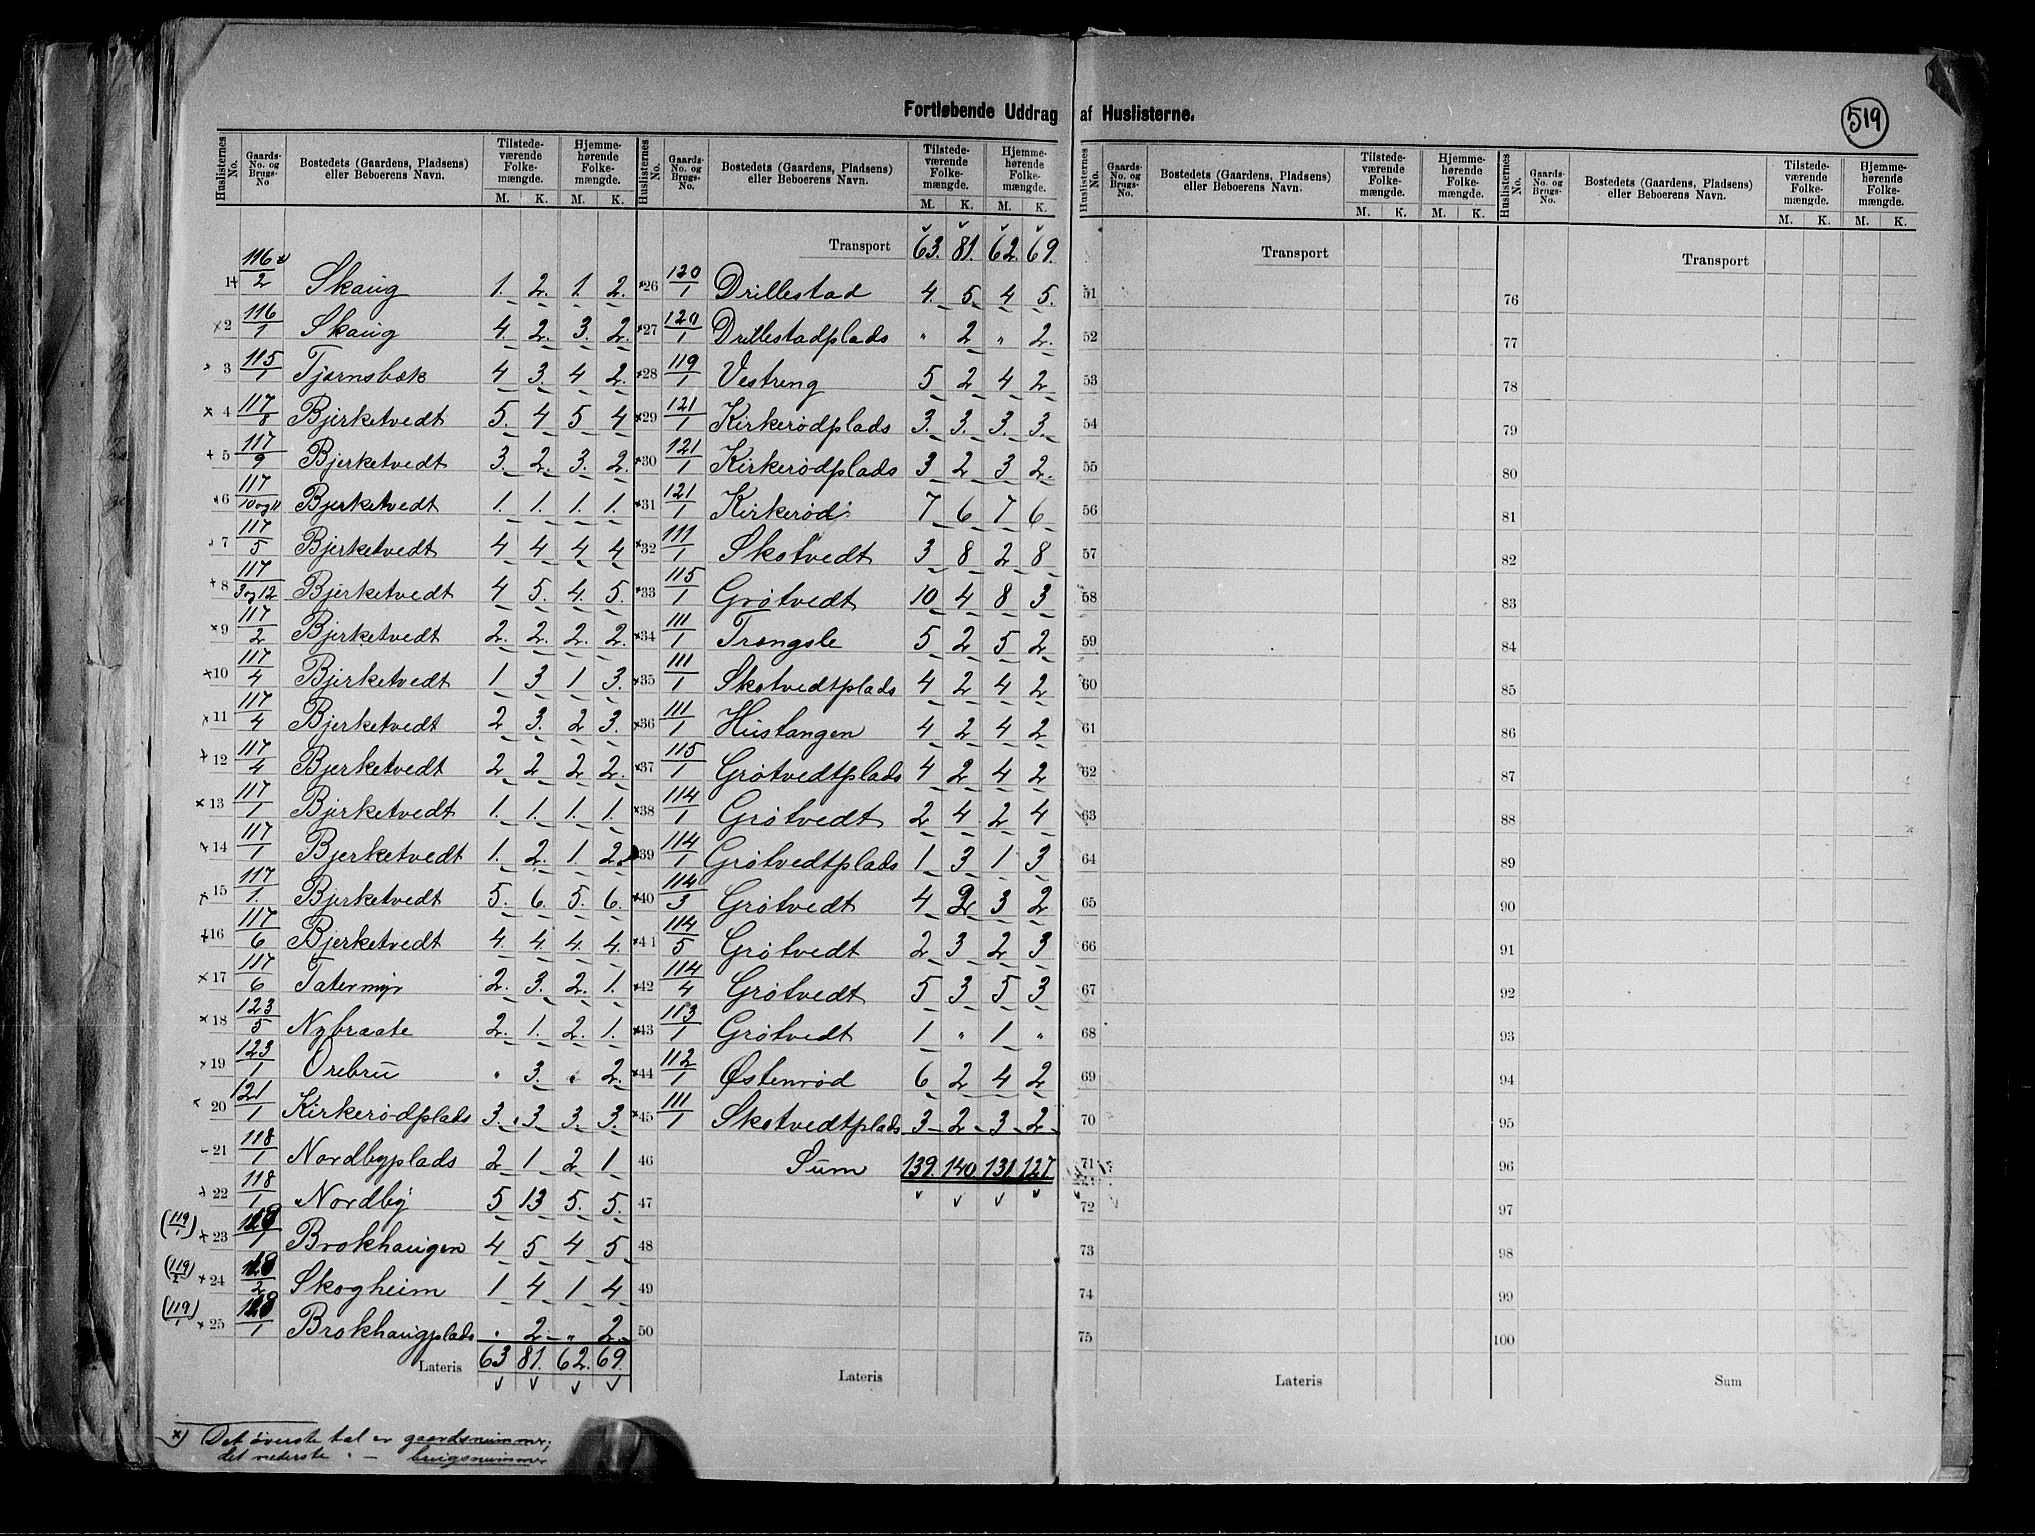 Fortløbende Uddrag af Huslisterne.
519
Huslisternes No. Gaards-No. og Brugs-No Bostedets (Gaardens, Pladsens) eller Beboerens Navn. Tilstedeværende Folkemængde. M. K. Hjemmehørende Folkemængde. M. K.
1 116/2 x) Skaug 1. 2. 1. 2.
2 116/1 Skaug 4. 2. 3. 2.
3 115/1 Tjernsbæk 4 3. 4 2.
4 117/8 Bjerketvedt 5. 4 5 4
5 117/9 Bjerketvedt 3. 2. 3. 2.
6 117/10 og 11 Bjerketvedt 1. 1. 1. 1.
7 117/5 Bjerketvedt 4 4 4 4
8 117/3 og 12 Bjerketvedt 4 5. 4. 5.
9 117/2 Bjerketvedt 2. 2. 2. 2.
10 117/4 Bjerketvedt 1 3 1 3.
11 117/4 Bjerketvedt 2 3. 2 3.
12 117/4 Bjerketvedt 2 2 2 2.
13 117/1 Bjerketvedt 1. 1. 1. 1.
14 117/1 Bjerketvedt 1. 2. 1. 2.
15 117/1. Bjerketvedt 5. 6. 5. 6.
16 117/6 Bjerketvedt 4. 4. 4. 4.
17 117/6 Tatermyr 2. 3. 2. 1.
18 123/5 Nybraate 2. 1. 2. 1.
19 123/1 Orebru " 3. " 2.
20 121/1 Kirkerødplads 3. 3. 3. 3.
21 118/1 Nordbyplads 2 1 2 1
22 118/1 Nordby 5 13 5. 5.
(119/1) 23 Brokhaugen 4 5 4 5
(119/2) 24 Skogheim 1 4 1 4
(119/1) 25 Brokhaugplads " 2 " 2
Lateris 63 81. 62. 69.
Huslisternes No. Gaards-No. og Brugs-No. Bostedets (Gaardens, Pladsens) eller Beboerens Navn. Tilstedeværende Folkemængde. M. K. Hjemmehørende Folkemængde. M. K.
Transport 63. 81. 62. 69.
26 120/1 Drillestad 4. 5 4 5.
27 120/1 Drillestadplads " 2 " 2.
28 119/1 Vestreng 5 2 4 2
29 121/1 Kirkerødplads 3. 3. 3. 3.
30 121/1 Kirkerødplads 3 2 3 2.
31 121/1 Kirkerød 7 6 7 6
32 111/1 Skotvedt 3 8 2 8
33 115/1 Grøtvedt 10 4 8 3
34 111/1 Trongsle 5 2 5 2
35 111/1 Skotvedtplads 4 2 4 2
36 111/1 Hustangen 4 2 4 2
37 115/1 Grøtvedtplads 4 2 4 2
38 114/1 Grøtvedt 2 4 2 4
39 114/1 Grøtvedtplads 1 3 1 3
40 114/3 Grøtvedt 4 2 3 2
41 114/5 Grøtvedt 2 3 2 3
42 114/4 Grøtvedt 5 3 5 3
43 113/1 Grøtvedt 1 " 1 "
44 112/1 Østenrød 6 2 4 2
45 111/1 Skotvedtplads 3 2 3 2
46 Sum 139. 140. 131. 127
47
48
49
50
Lateris
Huslisternes No. Gaards-No. og Brugs-No. Bostedets (Gaardens, Pladsens) eller Beboerens Navn. Tilstedeværende Folkemængde. M. K. Hjemmehørende Folkemængde. M. K.
Transport
51
52
53
54
55
56
57
58
59
60
61
62
63
64
65
66
67
68
69
70
71
72
73
74
75
Lateris
Huslisternes No. Gaards-No. og Brugs-No. Bostedets (Gaardens, Pladsens) eller Beboerens Navn. Tilstedeværende Folkemængde. M. K. Hjemmehørende Folkemængde. M. K.
Transport
76
77
78
79
80
81
82
83
84
85
86
87
88
89
90
91
92
93
94
95
96
97
98
99
100
Sum
x) Det øverste tal er gaardsnummer;
det nederste " — brugsnummer